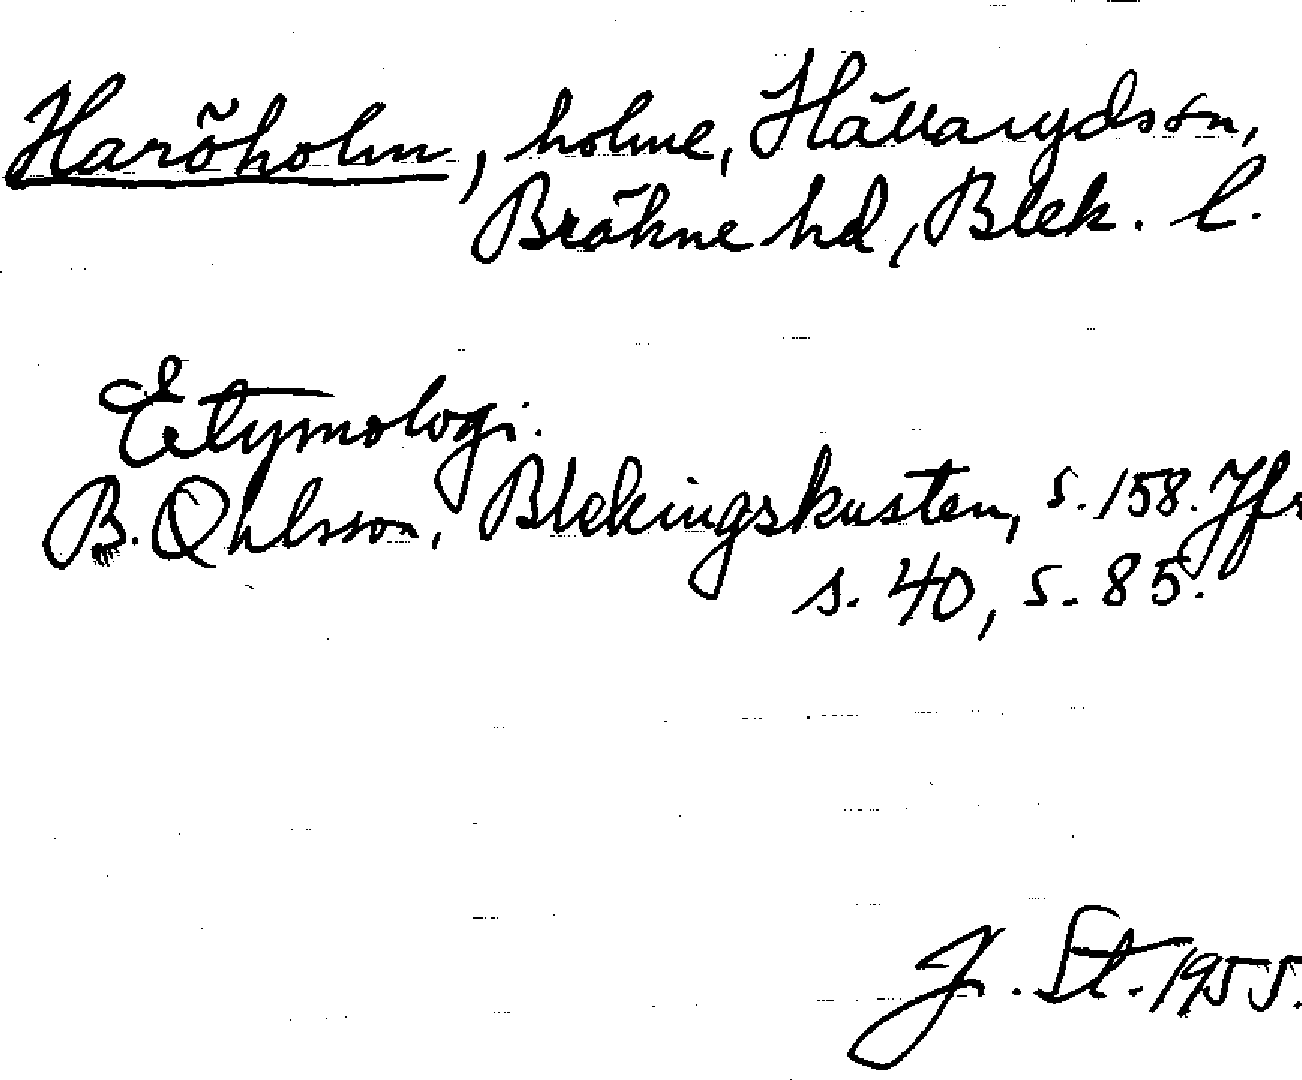 Haröholm, holme, Hällarydssn,
Bräkne hd, Blek. l.
Etymologi.
B. Ohlsson, Blekingskusten, s. 158. Jfr
s. 40, s. 85.
J. St. 1955.